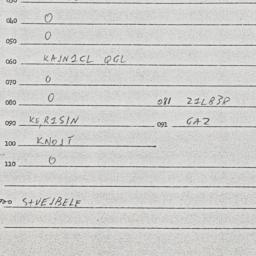 040 0
050 0
060 KAJN1CL QGL
070 0
080 0 081 21L83P
090 KE,R1SIN 091 GAZ
100 KNOJT
110 0
StVEJBELE